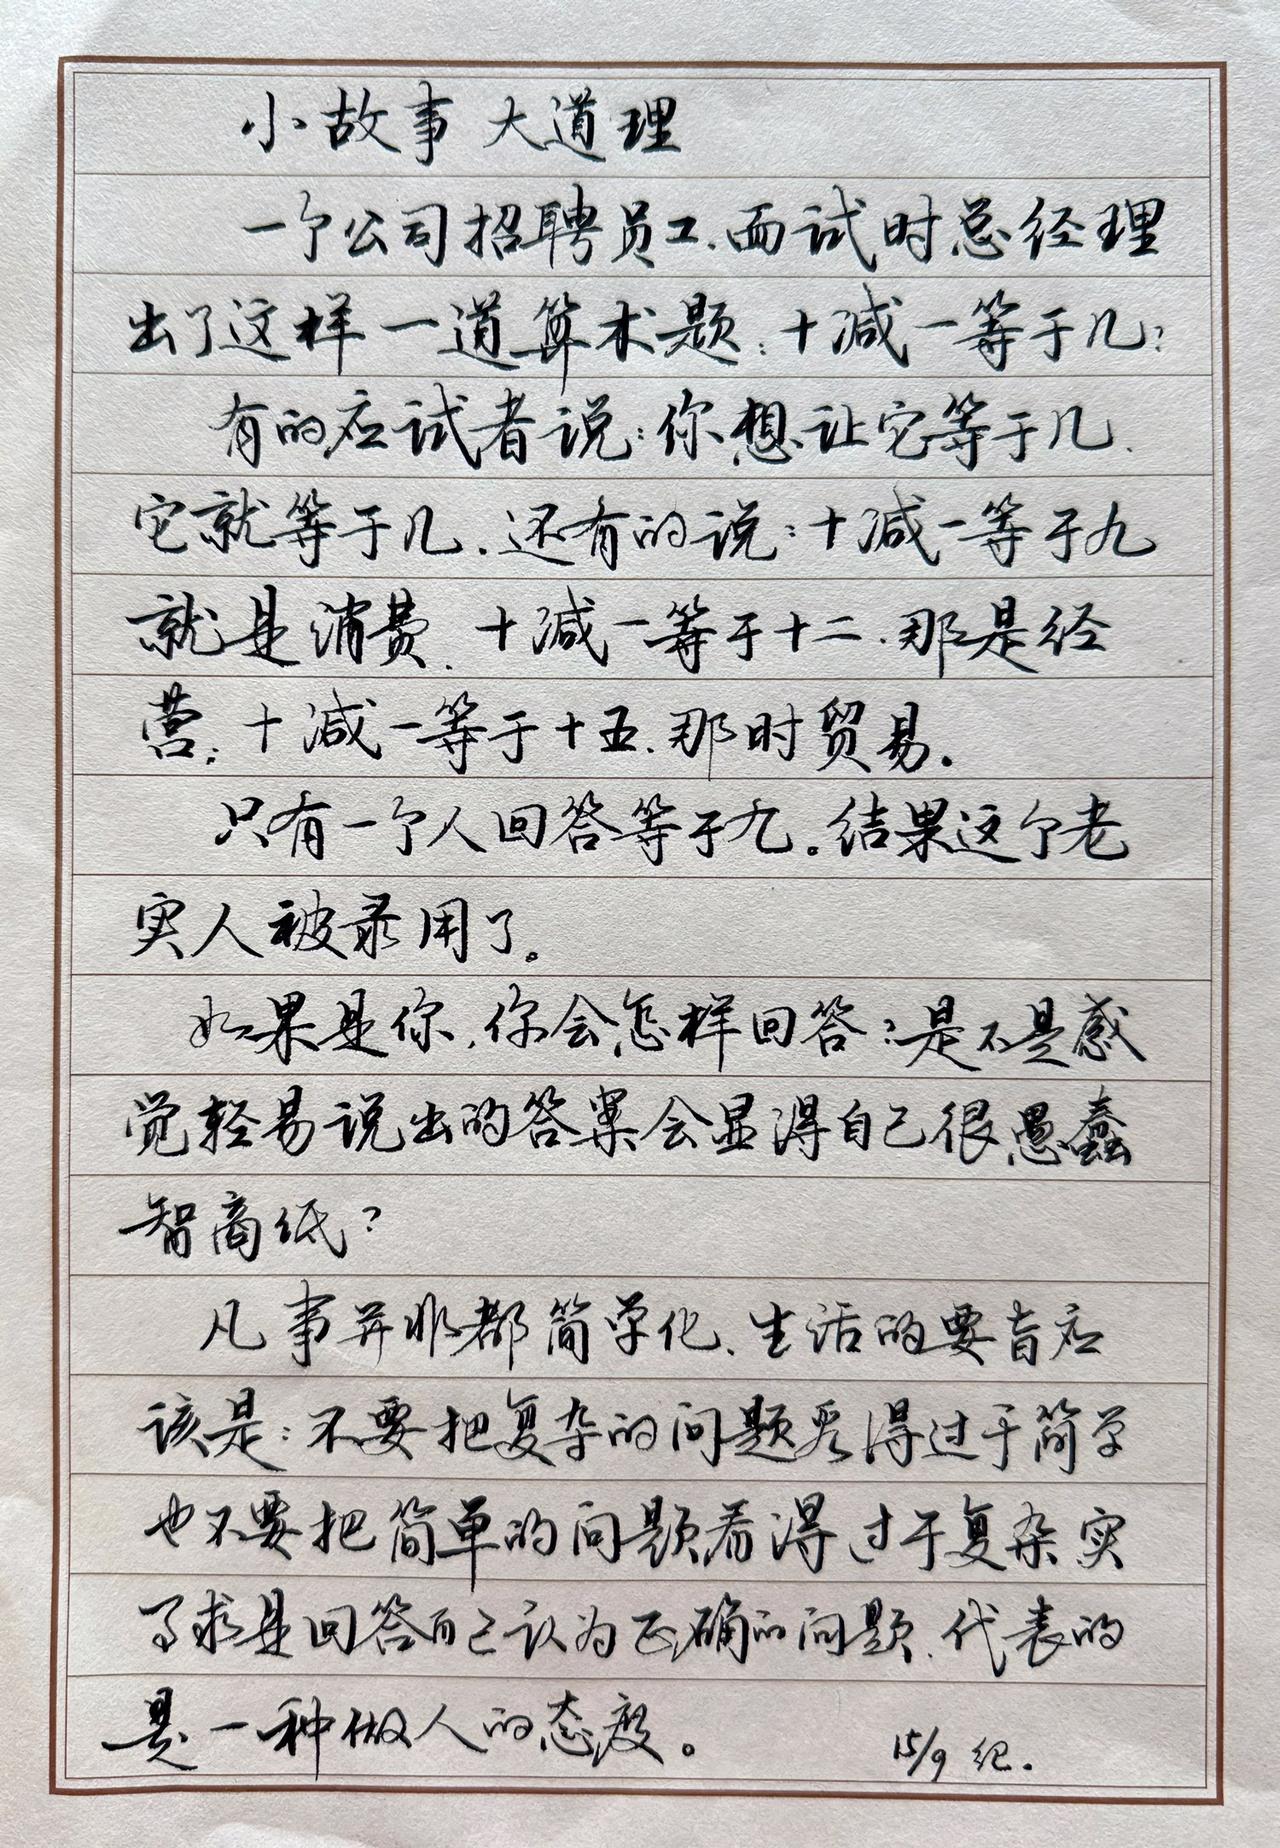 小故事 大道理
一个公司招聘员工、面试时总经理
出了这样一道算术题：十减一等于几？
有的应试者说：你想让它等于几、
它就等于几、还有的说：十减一等于九
就是消费、十减一等于十二、那是经
营；十减一等于十五、那时贸易。
只有一个人回答等于九。结果这个老
实人被录用了。
如果是你、你会怎样回答？是不是感
觉轻易说出的答案会显得自己很愚蠢
智商低？
凡事并非都简单化、生活的要旨应
该是：不要把复杂的问题看得过于简单
也不要把简单的问题看得过于复杂 实
事求是回答自己认为正确的问题、代表的
是一种做人的态度。
15/9 纪.